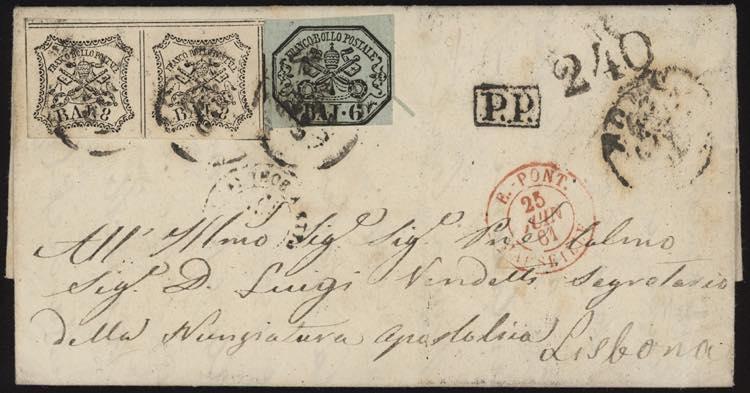 FRANCO BOLLO POSTALE
BAJ. 8
FRANCO BOLLO POSTALE
BAJ. 8
FRANCO BOLLO POSTALE
BAJ. 6
P.P.
240
E. PONT.
25
JUIN
61
MARSEILLE
All' Illmo Sig. Sig. Pne Colmo
Sig. D. Luigi Vendelli Segretario
della Nunziatura apostolica
Lisbona